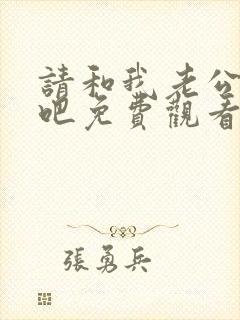 請和我老公
吧免費觀看
張勇兵